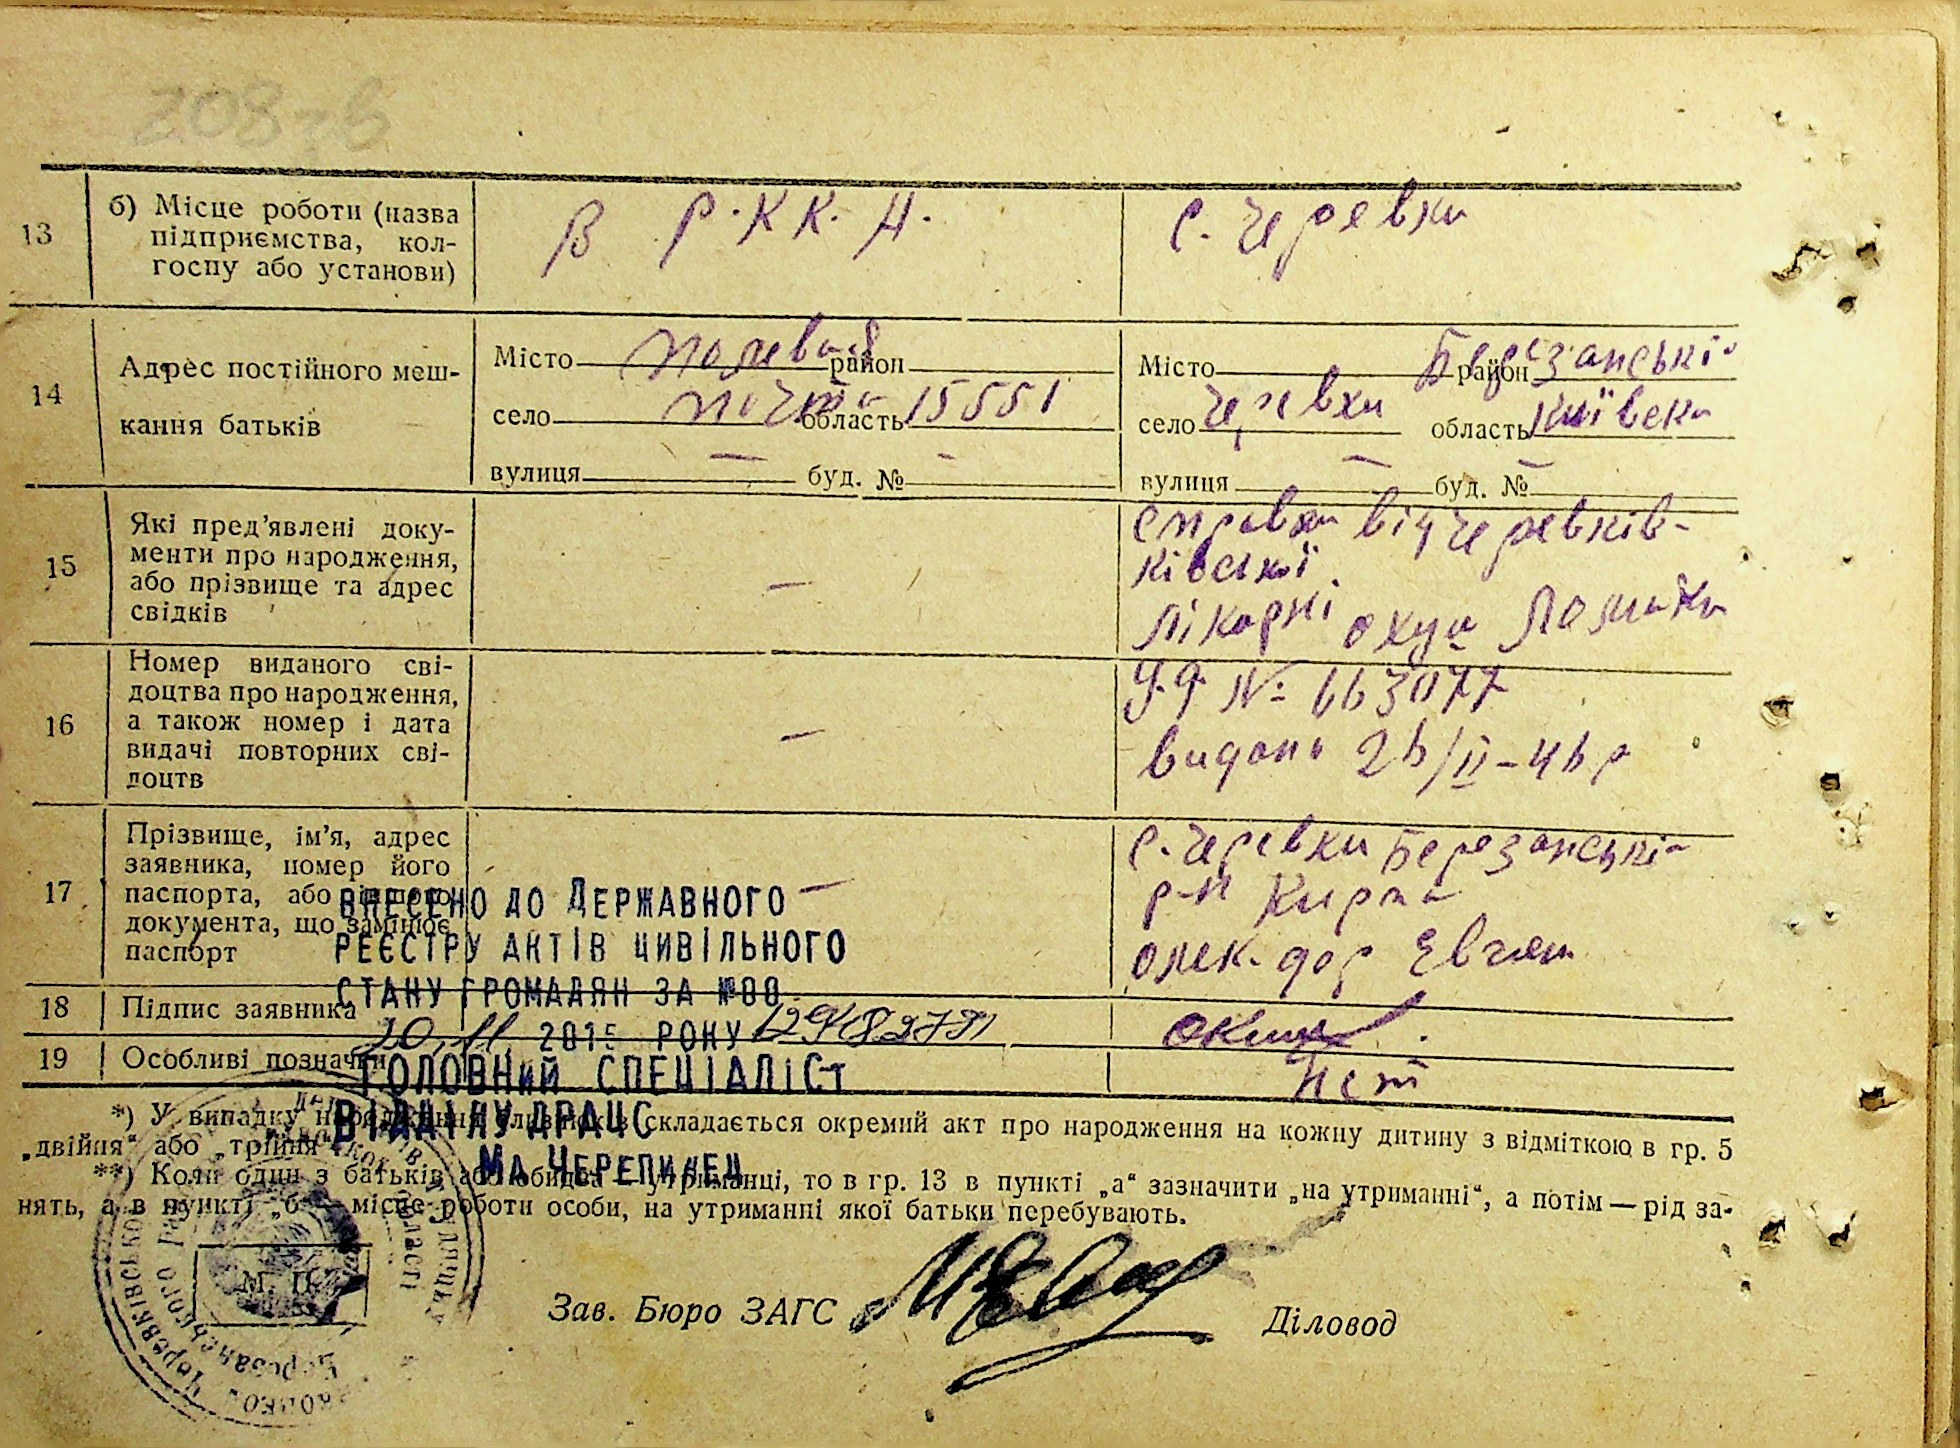 208зв
13
б) Місце роботи (назва
підприємства, кол-
госпу або установи)
в Р.К.К.А.
с. Черевки
14
Адрес постійного меш-
кання батьків
Місто полевая район
село почта область 15551
вулиця — буд. № -
Місто район Березанські-
село Черевки область Київска
вулиця — буд. № —
15
Які пред'явлені доку-
менти про народження,
або прізвище та адрес
свідків
—
справка від Черевків-
ківської
лікарні
16
Номер виданого сві-
доцтва про народження,
а також номер і дата
видачі повторних сві-
доцтв
—
№ 663077
видано 26/II-46р
17
Прізвище, ім'я, адрес
заявника, номер його
паспорта, або іншого
документа, що замінює
паспорт
—
с. Черевки Березанські-
р-н Кирпа
18
Підпис заявника
19
Особливі позначки
Нет
ВНЕСЕНО ДО ДЕРЖАВНОГО
РЕЄСТРУ АКТІВ ЦИВІЛЬНОГО
СТАНУ ГРОМАДЯН ЗА №00
20.11 2015 РОКУ
ГОЛОВНИЙ СПЕЦІАЛІСТ
ВІДДІЛУ ДРАЦС
МА ЧЕРЕПИНЕЦ
*) У випадку народження близнюків складається окремий акт про народження на кожну дитину з відміткою в гр. 5
„двійня“ або „трійня“.
**) Коли один з батьків або обидва — утриманці, то в гр. 13 в пункті „а“ зазначити „на утриманні“, а потім — рід за-
нять, а в пункті „б“ — місце роботи особи, на утриманні якої батьки перебувають.
М. П.
Зав. Бюро ЗАГС
Діловод